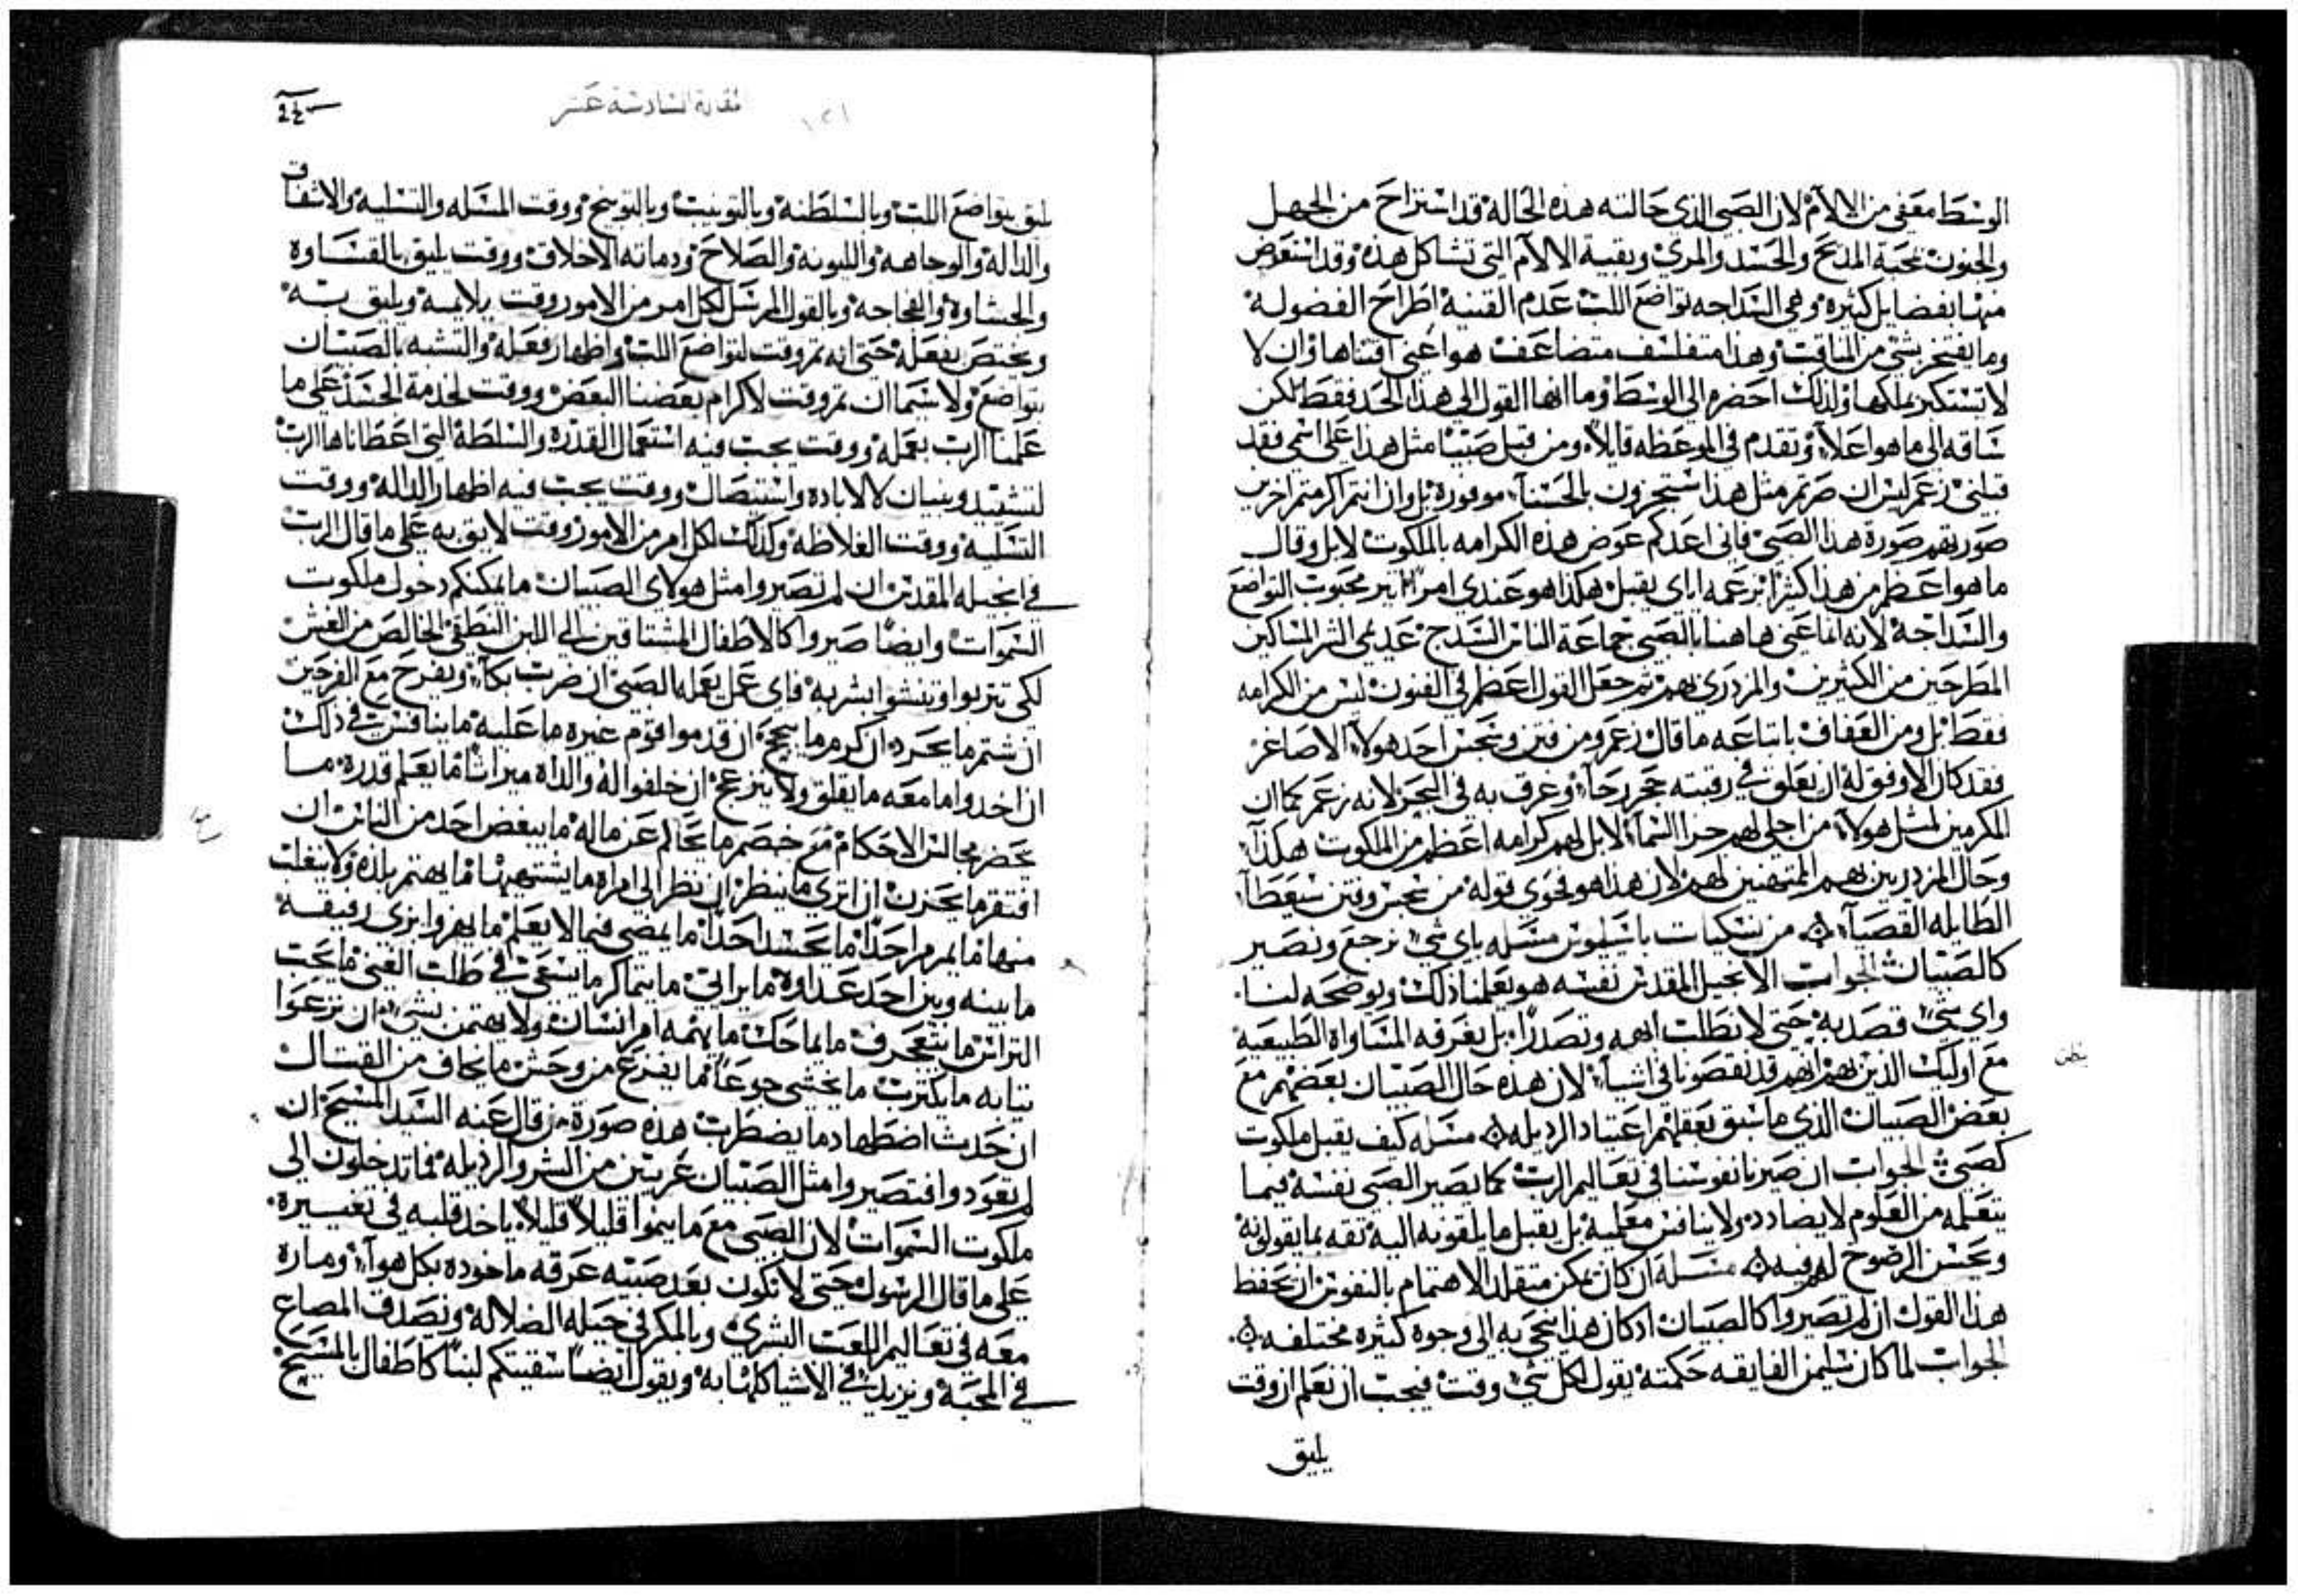 الوسط معفى من الالام لان الصبي الذي حالته هذه الحالة قد استراح من الجهل
والجنون بمحبة المدح والحسد والمري وبقية الالام التي تشاكل هذه وقد استعوض
منها بفضايل كثيره وهي السداجه تواضع اللب عدم القنية اطراح الفضولة
وما يفتخر بشي من المناقب وهذا متفلسف متضاعف هو اعني اقتناها وان لا
لا تستكبر بملكها ولذلك احضره الى الوسط وما انها القول الى هذا الحد فقط لكن
ساقه الى ما هو اعلا وتقدم في الموعظه قايلا ومن قبل صبيا مثل هذا على اسمي فقد
قبلني زعم ليس ان صرتم مثل هذا ستحوزون بالحسنا موفوره بل وان انتم اكرمتم اخرين
صورتهم صورة هذا الصبي فاني اعدكم عوض هذه الكرامه بالملكوت لابل وقال
ما هو اعظم من هذا كثيرا بزعمه اياي يقبل هكذا هو عندي امرا اثير محبوب التواضع
والسداجة لانه انما عنى هاهنا بالصبي جماعة الناس السدج عديمي الشر المساكين
المطرحين من الكثيرين والمزدري بهم ثم جعل القول اعظم في الفنون ليس من الكرامه
فقط بل ومن العفاف باتباعه ما قال زعم ومن فتن وبخس احد هولاء الاصاغر
فقد كان الاوفق له ان يعلق في رقبته حجر رحا وغرق به في البحر لانه زعم كما ان
المكرمين لمثل هولاء من اجلي لهم جزا السما لابل لهم كرامه اعظم من الملكوت هكذا
وحال المزدريين بهم الممتهنين لهم لان هذا هو فحوى قوله من بخس وفتن سيعطا
الطايله القصيا من نسكيات باسيليوس مسله باي شي نرجع ونصير
كالصبيان الجواب الانجيل المقدس نفسه هو يعلمنا ذلك ويوضحه لنا
واي شي قصد به حتى لا نطلب ابهه وتصدرا بل نعرفه المساواه الطبيعية
مع اوليك الذين بهم انهم قد نقصونا في اشيا لان هذه حال الصبيان بعضهم مع
بعض الصبيان الذي ما سبق بعقلهم اعتياد الرديله مسله كيف يقبل ملكوت
كصبي الجواب ان صيرنا نفوسنا في تعاليم الرب كما يصير الصبي نفسه فيما
يتعلمه من العلوم لا يضادد ولا ينافس معلميه بل يقبل ما يلقونه اليه ثقه بما يقولونه
ويحسن الرضوخ لهم فيه مسله ان كان يمكن متقلد الاهتمام بالنفوس ان يحفظ
هذا القول ان لم تصيروا كالصبيان اد كان هذا ينحى به الى وجوه كثيره مختلفه
الجواب لما كان سليمن الفايقه حكمته يقول لكل شي وقت فيجب ان نعلم ان وقت
يليق
مقالة السادسة عشر
يليق بتواضع اللب وبالسلطنة وبالتونيب وبالتوبيخ ووقت المسله والتسلية والاشفاق
والدالة والوجاهه والليونة والصلاح ودماثه الاخلاق ووقت يليق بالقساوه
والجشاوة والفجاجه وبالقول المرسل لكل امر من الامور وقت يلايمه ويليق به
ويختص بفعله حتى انه ثم وقت لتواضع اللب واظهار فعله والتشبه بالصبيان
بتواضع ولا سيما ان ثم وقت لاكرام بعضنا البعض ووقت لخدمة الجسد على ما
علمنا الرب بعمله ووقت يجب فيه استعمال القدرة والسلطة التي اعطاناها الرب
لتشييد وبنيان لا لاباده واستيصال ووقت يجب فيه اظهار الدالة ووقت
التسلية ووقت الغلاظة وكذلك لكل امر من الامور وقت لايق به على ما قال الرب
في انجيله المقدس ان لم تصيروا مثل هولاي الصبيان ما يمكنكم دخول ملكوت
السموات وايضا صيروا كالاطفال المشتاقين الى اللبن النطقي الخالص من الغش
لكي تتربوا وتنشوا بشربه فاي عمل يعمله الصبي ان ضرب بكا ويفرح مع الفرحين
ان شتم ما يحرد ان كرم ما يبجح ان قدموا قوم غيره ما عليه ما ينافس في ذلك
ان اخدوا ما معه ما يقلق ولا ينزعج ان خلفوا له والداه ميراثا ما يعلم قدره ما
يحضر مجالس الاحكام مع خصم ما يحاكم عن ماله ما يبغض احد من الناس ان
افتقر ما يحزن ان اثرى ما ينظر ان نظر الى امراه ما يشتهيها ما يهتم بلذه ولا ينغلب
منها ما يمرمر احدا ما يحسد احدا ما يمضي فيما لا يعلم ما يهزوا بزي رفيقه
ما بينه وبين احد عداوه ما يرايي ما يتماكر ما يسعى في طلب الغنى ما يحب
التراس ما يتعجرف ما يماحك ما يهمه امر انسان ولا يهتمن بشي ان نزعوا
ثيابه ما يكترب ما يخشى جوعا ما يفزع من وحش ما يخاف من القتال
ان حدث اضطهاد ما يضطرب هذه صورة من قال عنه السيد المسيح ان
لم تعودوا فتصيروا مثل الصبيان غريبين من الشر والرديله فما تدخلون الى
ملكوت السموات لان الصبي مع ما ينموا قليلا قليلا ياخد قلبه في تغييره
على ما قال الرسول حتى لا نكون بعد صبيه غرقه ماخوده بكل هوا ومارة
معه في تعاليم اللعب البشري وبالمكر في حيله الضلالة ونصدف المصاع
في المحبة ونزيد في الاشيا كلها به ويقول ايضا سقيتكم لبنا كاطفال بالمسيح